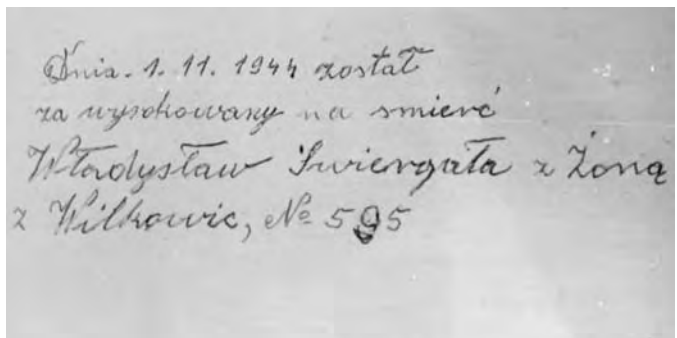 Dnia. 1. 11. 1944 został
za wysokowany na smierć
Władysław Świergała z Żoną
z Wilkowic, № 595